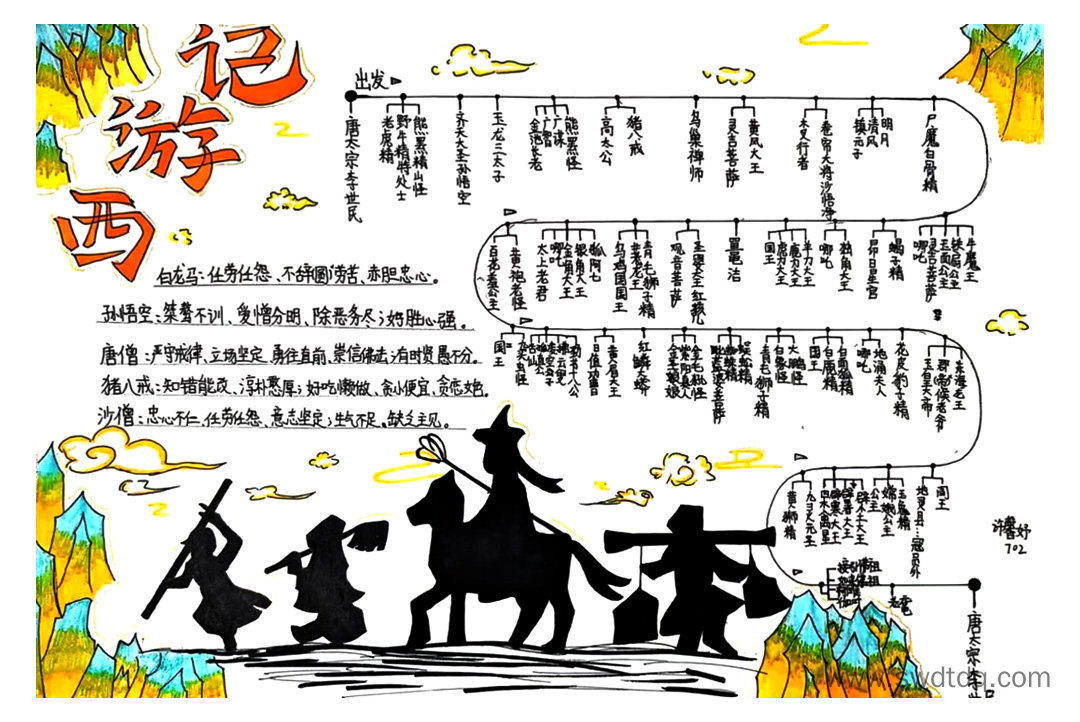 西游记
出发
唐太宗李世民
老虎精
野牛精特处士
熊黑精山怪
齐天大圣孙悟空
玉龙三太子
金池长老
广智
广谋
熊黑怪
高太公
猪八戒
乌巢禅师
灵吉菩萨
黄风大王
木叉行者
卷帘大将沙悟净
镇元子
清风
明月
尸魔白骨精
牛魔王
铁扇公主
玉面公主
灵吉菩萨
哪吒
蝎子精
昴日星官
独角大王
哪吒
羊力大王
鹿力大王
虎力大王
国王
鼍洁
圣婴大王红孩儿
观音菩萨
青毛狮子精
乌鸡国国王
狐阿七
银角大王
金角大王
哪吒
太上老君
黄袍老怪
百花羞公主
国王
九头虫怪
日值功曹
黄眉大王
红鳞大蟒
青毛狮子精
白象怪
大鹏怪
国王
白鹿精
哪吒
地涌夫人
花皮豹子精
玉皇大帝
黄狮精
九灵元圣
四木禽星
辟寒大王
辟暑大王
辟尘大王
公主
嫦娥公主
玉兔精
地灵县…寇员外
阎王
白龙马:任劳任怨、不辞圆劳苦、赤胆忠心。
孙悟空:桀骜不训、爱憎分明、除恶务尽;好胜心强。
唐僧:严守戒律、立场坚定、勇往直前、崇信佛法;有时贤愚不分。
猪八戒:知错能改、淳朴憨厚;好吃懒做、贪小便宜、贪恋女色。
沙僧:忠心不仁、任劳任怨、意志坚定;生气不足、缺乏主见。
许馨妤
702
唐太宗李世民
www.swdtdq.com